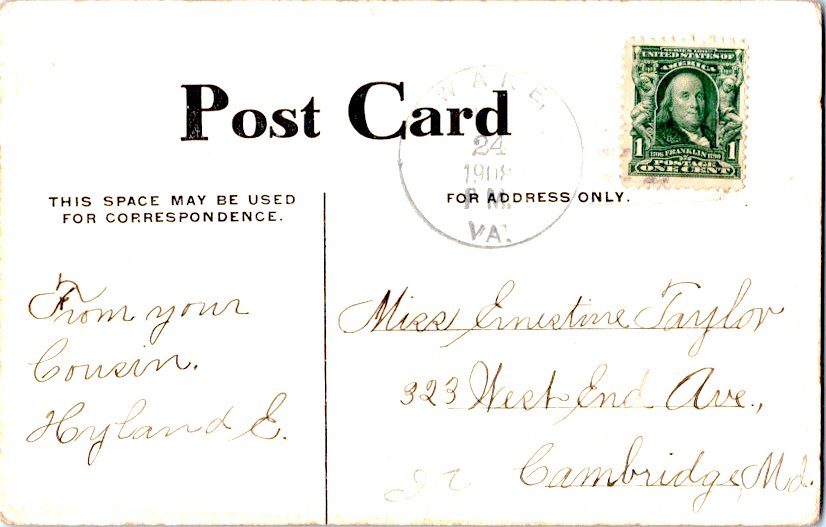 Post Card
WAKE,
24
1908
P M.
VA.
SERIES 1902
UNITED STATES OF
AMERICA
1 1706 FRANKLIN 1790 1
POSTAGE
ONE CENT
THIS SPACE MAY BE USED
FOR CORRESPONDENCE.
FOR ADDRESS ONLY.
From your
Cousin.
Hyland E.
Miss Ernestine Taylor
323 West End Ave.,
Cambridge, Md.